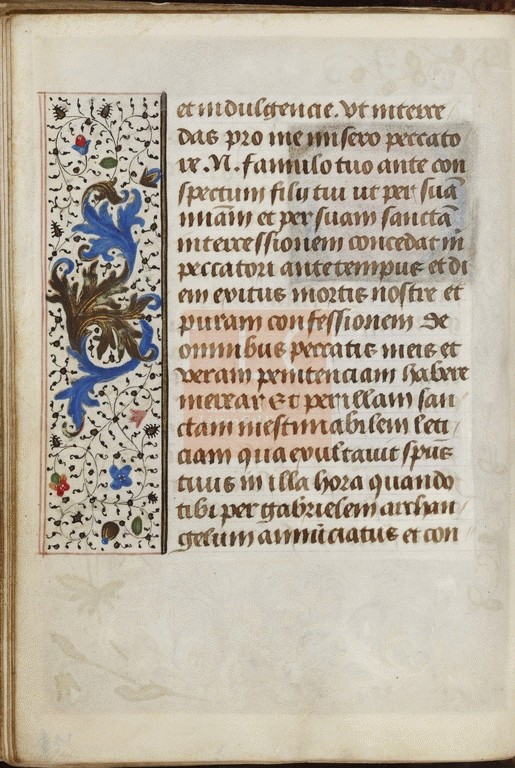 et indulgencie. Vt interce
das pro me misero peccato
re. N. famulo tuo ante con
spectum filij tui ut per suā
miam̄ et per suam sanctā
intercessionem concedat m̄
peccatori ante tempus et di
em exitus mortis nostre et
puram confessionem de
omnibus peccatis meis et
veram penitenciam habere
merear Et per illam san
ctam inestimabilem leti
ciam qua exultauit sp̄us
tuus in illa hora quando
tibi per gabrielem archan
gelum annūciatus et con